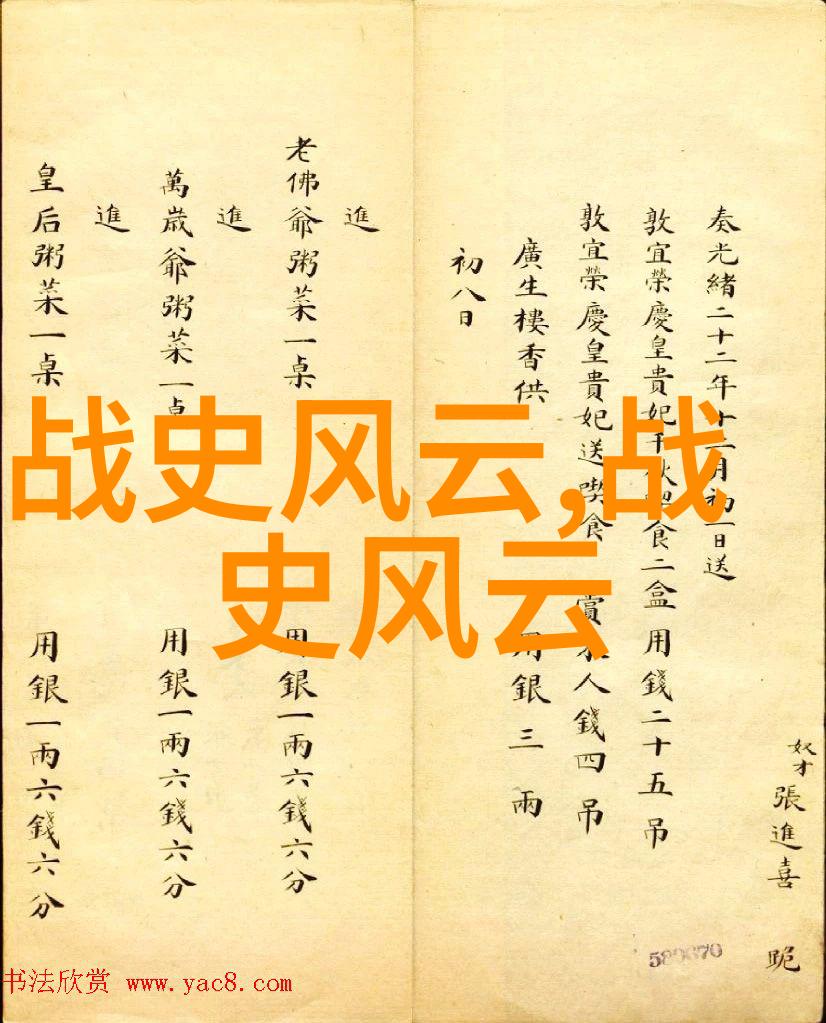 奴才張進喜 跪
奏光緒二十二年十二月初一日送
敦宜榮慶皇貴妃千秋喫食二盒用錢二十五吊
敦宜榮慶皇貴妃送喫食 賞人錢四吊
廣生樓香供 用銀三兩
初八日
進
老佛爺粥菜一桌 用銀一兩六錢六分
進
萬歲爺粥菜一桌 用銀一兩六錢六分
進
皇后粥菜一桌 用銀一兩六錢六分
战史风云,战
史风云
书法欣赏 www.yac8.com